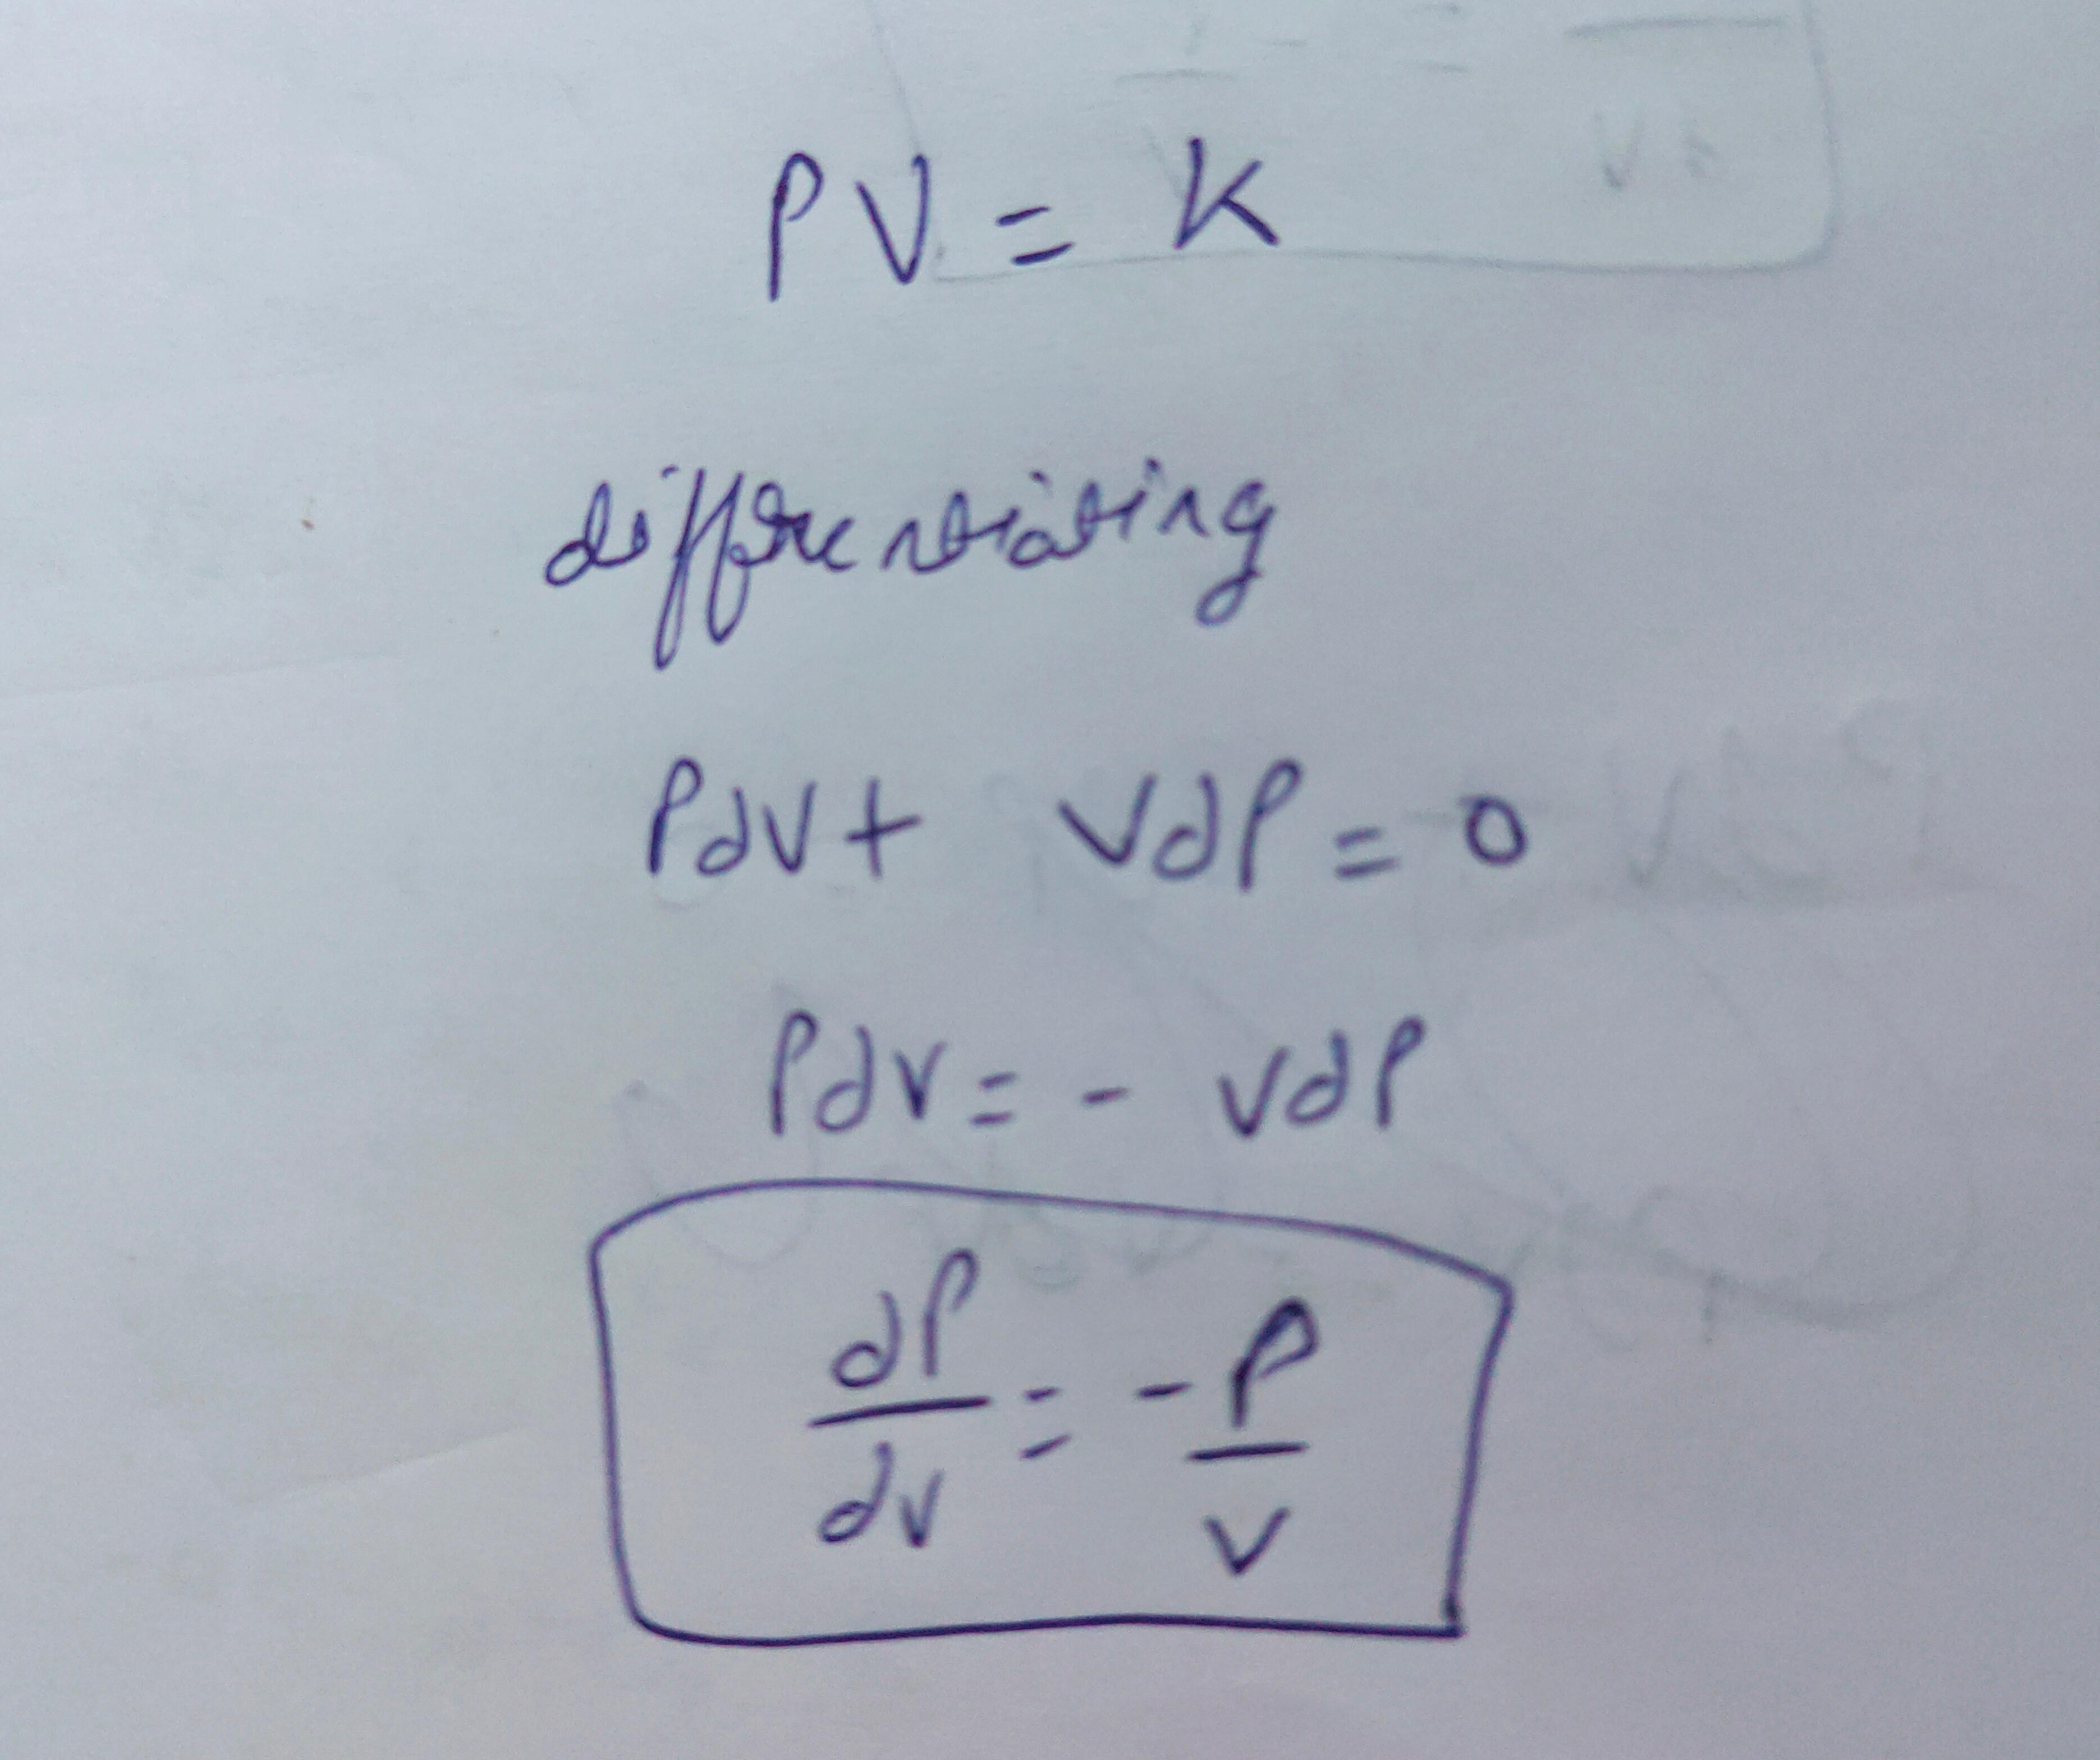 PV = K
differentiating
PdV + VdP = 0
PdV = - VdP
dP/dV = - P/V